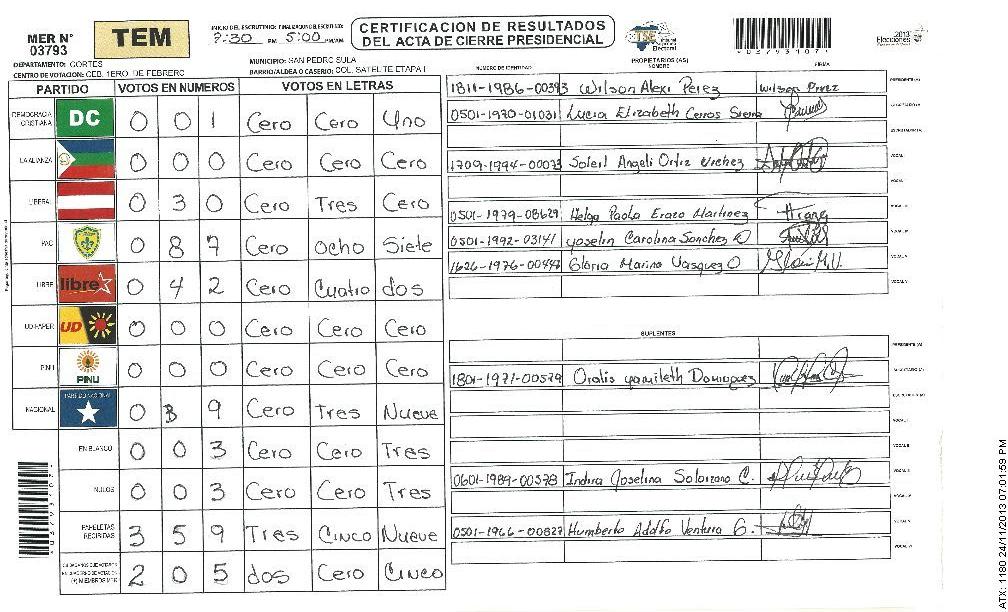 MER N° 03793
TEM
INICIO DEL ESCRUTINIO: FINALIZACION DEL ESCRUTINIO:
7:30 PM 5:00 PM/AM
CERTIFICACION DE RESULTADOS
DEL ACTA DE CIERRE PRESIDENCIAL
TSE Tribunal Supremo Electoral
Elecciones 2013
DEPARTAMENTO: CORTES
MUNICIPIO: SAN PEDRO SULA
CENTRO DE VOTACION: CEB. 1ERO. DE FEBRERO
BARRIO/ALDEA O CASERIO: COL. SATELITE ETAPA I
PARTIDO VOTOS EN NUMEROS VOTOS EN LETRAS
DEMOCRACIA CRISTIANA DC 0 0 1 Cero Cero Uno
LA ALIANZA 0 0 0 Cero Cero Cero
LIBERAL 0 3 0 Cero Tres Cero
PAC 0 8 7 Cero Ocho Siete
LIBRE libre 0 4 2 Cero Cuatro dos
UD-FAPER UD 0 0 0 Cero Cero Cero
PINU PINU 0 0 0 Cero Cero Cero
NACIONAL PARTIDO NACIONAL 0 3 9 Cero Tres Nueve
EN BLANCO 0 0 3 Cero Cero Tres
NULOS 0 0 3 Cero Cero Tres
PAPELETAS RECIBIDAS 3 5 9 Tres Cinco Nueve
2 0 5 dos Cero Cinco
PROPIETARIOS (AS)
NUMERO DE IDENTIDAD NOMBRE FIRMA
1811-1986-00393 Wilson Alexi Perez Wilson Perez
PRESIDENTE (A)
0501-1970-01031 Lucia Elizabeth Cerros Sierra
SECRETARIO (A)
ESCRUTADOR (A)
1709-1994-00073 Soleil Angeli Ortiz Vichez
VOCAL I
0501-1979-08629 Helga Paola Erazo Martinez
0501-1992-03141 Yoselin Carolina Sanchez O
1626-1976-00447 Gloria Marina Vasquez O
SUPLENTES
PRESIDENTE (A)
1801-1971-00579 Oralis Yamileth Dominguez
SECRETARIO (A)
ESCRUTADOR (A)
VOCAL I
VOCAL II
0601-1989-00578 Indira Joselina Solorzano C.
0501-1966-00827 Humberto Adolfo Ventura G.
ATX: 1180 24/11/2013 07:01:59 PM